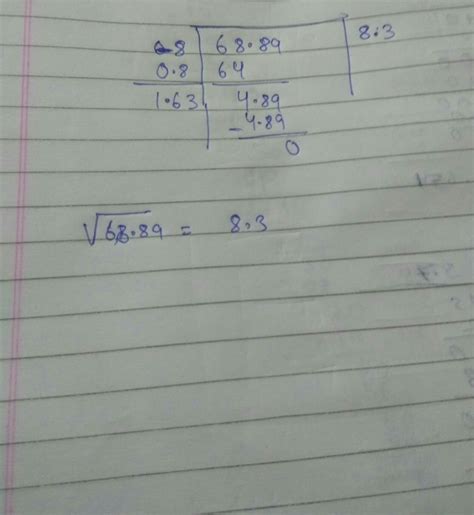 8 68.89 8.3
0.8 64
1.63 4.89
- 4.89
0
√68.89 = 8.3